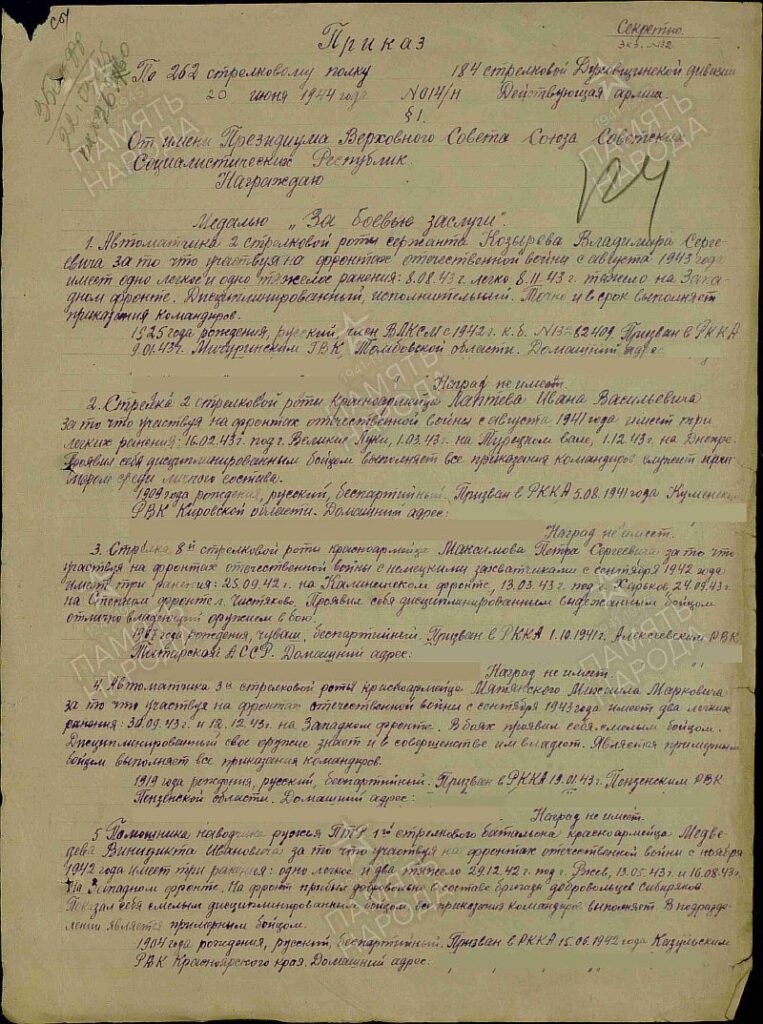 Секретно.
Экз. №2
Приказ
По 262 стрелковому полку 184 стрелковой Духовщинской дивизии
20 июня 1944 года №014/н Действующая армия
§1.
От имени Президиума Верховного Совета Союза Советских
Социалистических Республик.
Награждаю
Медалью „За боевые заслуги".
1. Автоматчика 2 стрелковой роты сержанта Козырева Владимира Серге-
евича за то что участвуя на фронтах отечественной войны с августа 1943 года
имеет одно легкое и одно тяжелое ранения: 8.08.43г. легко 8.11.43г. тяжело на Запа-
дном фронте. Дисциплинированный, исполнительный. Точно и в срок выполняет
приказания командиров.
1925 года рождения, русский, член ВЛКСМ с 1942г. к.б. Призван в РККА
9.01.43г. Мичуринским ГВК Тамбовской области. Домашний адрес:
Наград не имеет.
2. Стрелка 2 стрелковой роты красноармейца Лаптева Ивана Васильевича
за то что участвуя на фронтах отечественной войны с августа 1941 года имеет три
легких ранения: 16.02.43г. под г. Великие Луки, 1.03.43г. на Турецком вале, 1.12.43г. на Днепре.
Проявил себя дисциплинированным бойцом выполняет все приказания командиров служит при-
мером среди личного состава.
1909 года рождения, русский, беспартийный. Призван в РККА 5.08.1941 года
РВК Кировской области. Домашний адрес:
Наград не имеет.
3. Стрелка 8й стрелковой роты красноармейца Максимова Петра Сергеевича за то что
участвуя на фронтах отечественной войны с немецкими захватчиками с сентября 1942 года
имеет три ранения: 25.09.42г. на Калининском фронте, 13.03.43г. под г. Харьков, 27.09.43г.
на Степном фронте г. Чистяково. Проявил себя дисциплинированным выдержанным бойцом
отлично владеющий оружием в бою.
1907 года рождения, чуваш, беспартийный. Призван в РККА 1.10.1941г. Алексеевским РВК
Татарской АССР. Домашний адрес:
Наград не имеет.
4. Автоматчика 3й стрелковой роты красноармейца Максима Марковича
за то что участвуя на фронтах отечественной войны с сентября 1943 года имеет два легких
ранения: 30.09.43г. и 12.12.43г. на Западном фронте. В боях проявил себя смелым бойцом.
Дисциплинированный свое оружие знает и в совершенстве им владеет. Является примерным
бойцом выполняет все приказания командиров.
1919 года рождения, русский, беспартийный. Призван в РККА 19.01.43г. Пензенским РВК
Пензенской области. Домашний адрес:
Наград не имеет.
5. Помощника наводчика ружья ПТР 1го стрелкового батальона красноармейца Медве-
дева Винидикта Ивановича за то что участвуя на фронтах отечественной войны с ноября
1942 года имеет три ранения: одно легкое и два тяжело 29.12.42г. под г. Ржев, 13.05.43г. и 16.08.43г.
На Западном фронте. На фронт прибыл добровольно в составе бригады добровольцев Сибиряков.
Показал себя смелым дисциплинированным бойцом, все приказания командиров выполняет. В подразде-
лении является примерным бойцом.
1904 года рождения, русский, беспартийный. Призван в РККА 15.06.1942 года Казульским
РВК Красноярского края. Домашний адрес:
ПАМЯТЬ НАРОДА